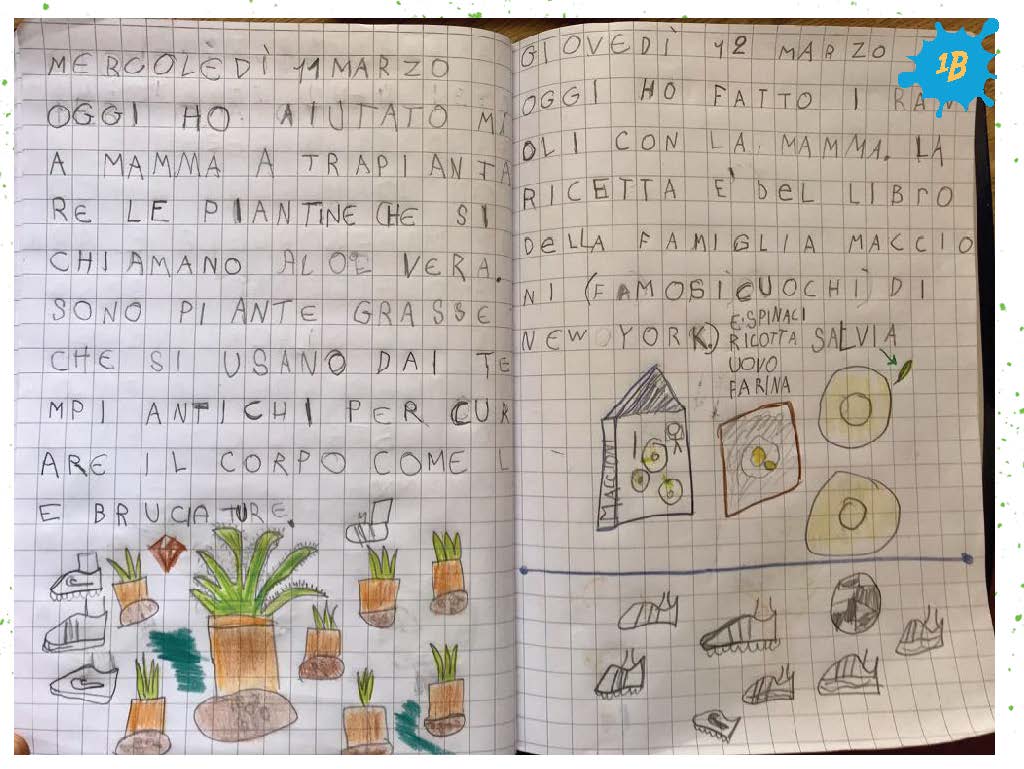 MERCOLÈDÌ 11 MARZO
OGGI HO AIUTATO MI
A MAMMA A TRAPIANTA
RE LE PIANTINE CHE SI
CHIAMANO ALOE VERA.
SONO PIANTE GRASSE
CHE SI USANO DAI TE
MPI ANTICHI PER CUR
ARE IL CORPO COME L
E BRUCIATURE.
GIOVEDÌ 12 MARZO
OGGI HO FATTO I RAVI
OLI CON LA MAMMA. LA
RICETTA E' DEL LIBrO
DELLA FAMIGLIA MACCIO
NI (FAMOSI CUOCHI) DI
NEW YORK.)
E SPINACI
RICOTTA
UOVO
FARINA
SALVIA
MACCIONI
1B